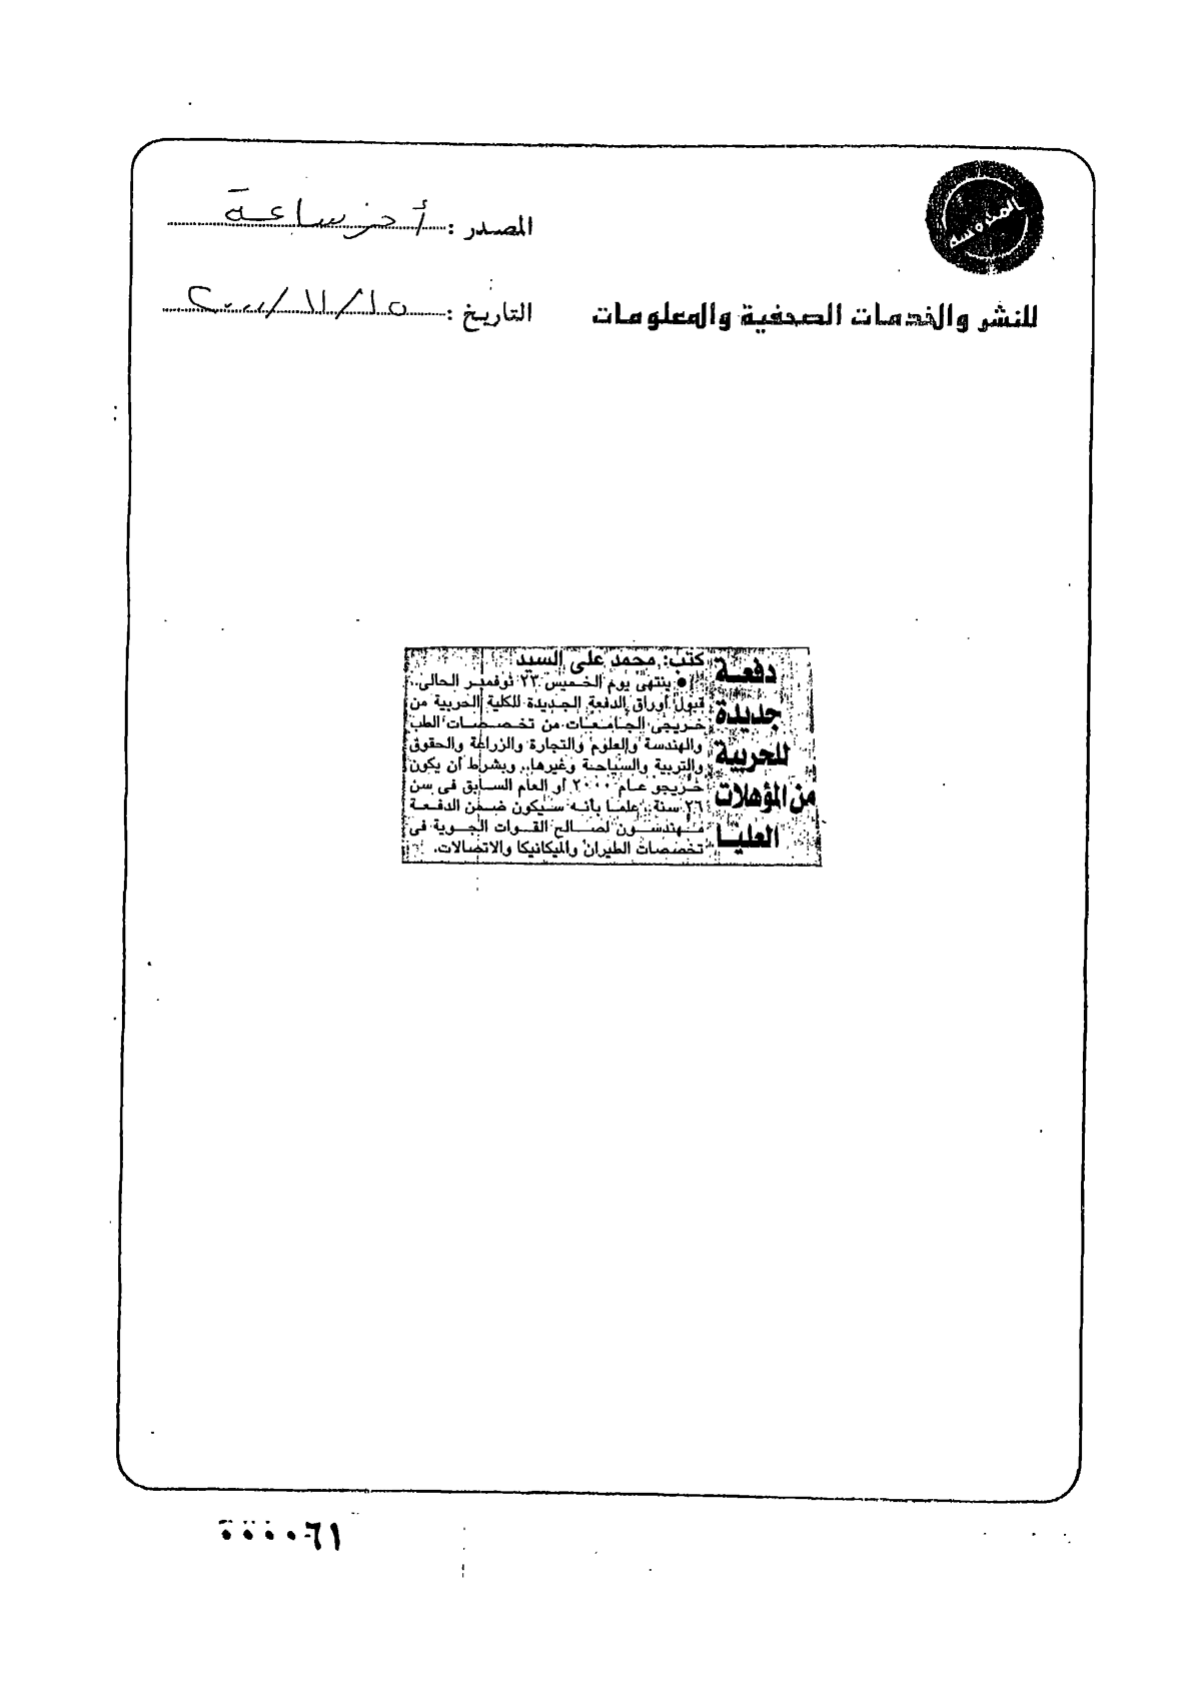 المصدر : أخر ساعة
للنشر والخدمات الصحفية والمعلومات
التاريخ : ١٥/١١/٢٠٠٠
دفعة
جديدة
للحربية
من المؤهلات
العليا
كتب: محمد على السيد
● ينتهى يوم الخميس ٢٣ نوفمبر الحالى..
قبول أوراق الدفعة الجديدة للكلية الحربية من
خريجى الجامعات من تخصصات الطب
والهندسة والعلوم والتجارة والزراعة والحقوق
والتربية والسياحة وغيرها.. وبشرط أن يكون
خريجو عام ٢٠٠٠ أو العام السابق فى سن
٢٦ سنة، علما بأنه سيكون ضمن الدفعة
مهندسون لصالح القوات الجوية فى
تخصصات الطيران والميكانيكا والاتصالات.